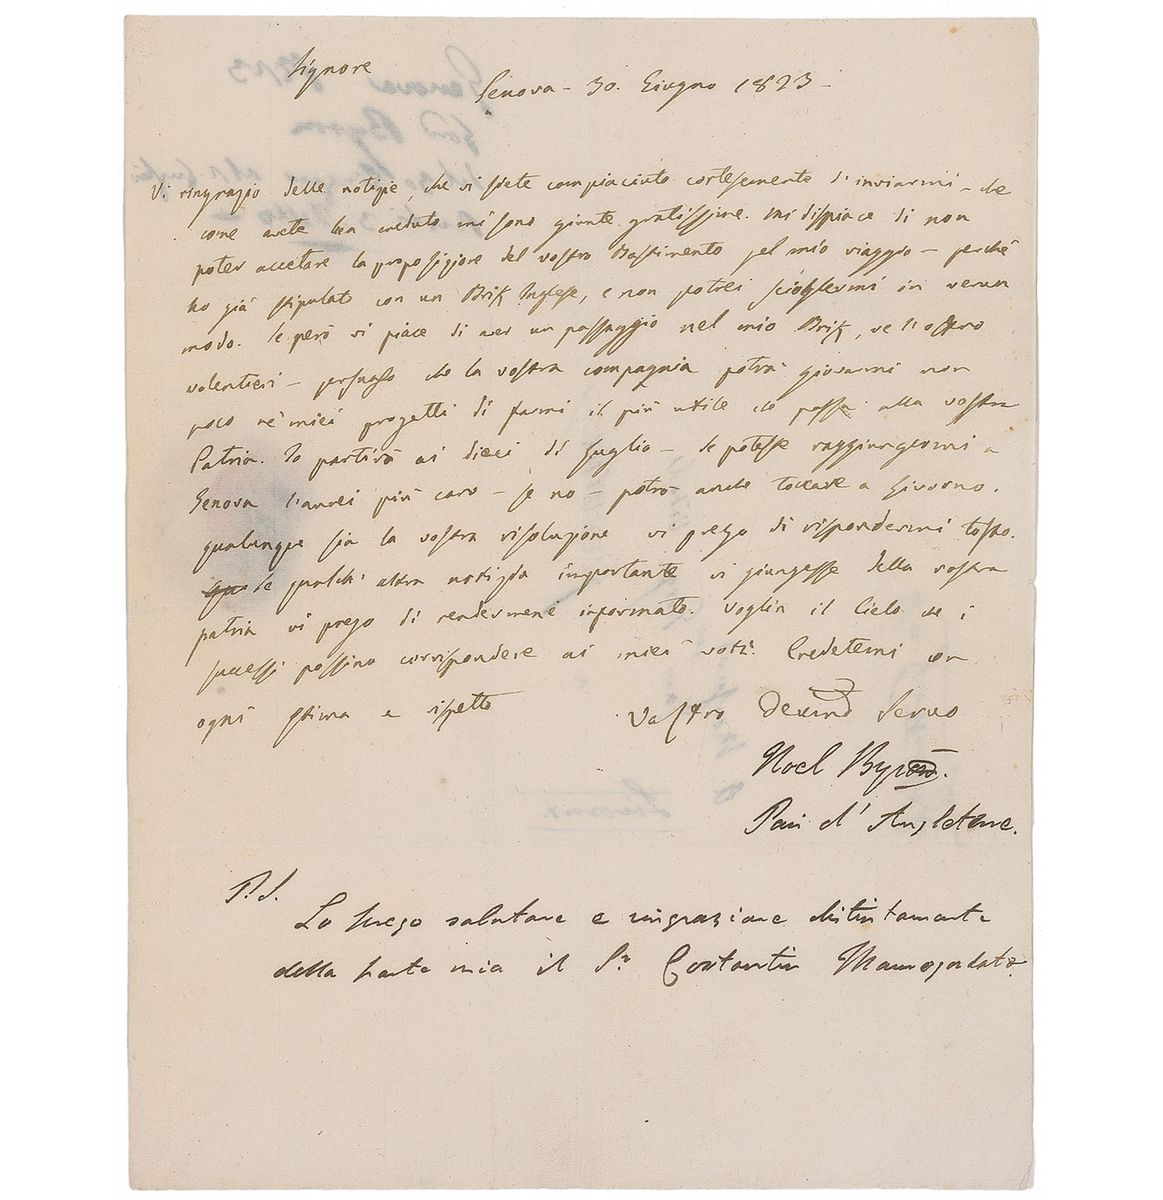 Signore
Genova - 30. Giugno 1823 -
Vi ringrazio delle notizie, che vi siete compiaciuto cortesemente d'inviarmi - che
come avete ben creduto mi sono giunte gratissime. Mi dispiace di non
poter accettare la proposizione del vostro Bastimento pel mio viaggio - perché
ho già stipulato con un Brik Inglese, e non potrei sciogliermi in verun
modo. Se però vi piace di aver un passaggio nel mio Brik, ve l'offro
volentieri - persuaso che la vostra compagnia potrà giovarmi non
poco ne' miei progetti di farmi il più utile ch'io possa alla vostra
Patria. Io partirò ai dieci di Luglio - se poteste raggiungermi a
Genova l'aurei più caro - se no - potrò anche toccare a Livorno.
qualunque sia la vostra risoluzione vi prego di rispondermi tosto.
Se qualch' altra notizia importante vi giungesse della vostra
patria vi prego di rendermene informato. Voglia il Cielo che i
successi possino corrispondere ai miei voti. Credetemi con
ogni stima e rispetto
Vostro Devmo Servo
Noel Byron.
Pair d' Angleterre.
P.S.
La prego salutare e ringraziare distintamente
della parte mia il Sr. Costantin Maurogordato
Genova
Byron
Livorno